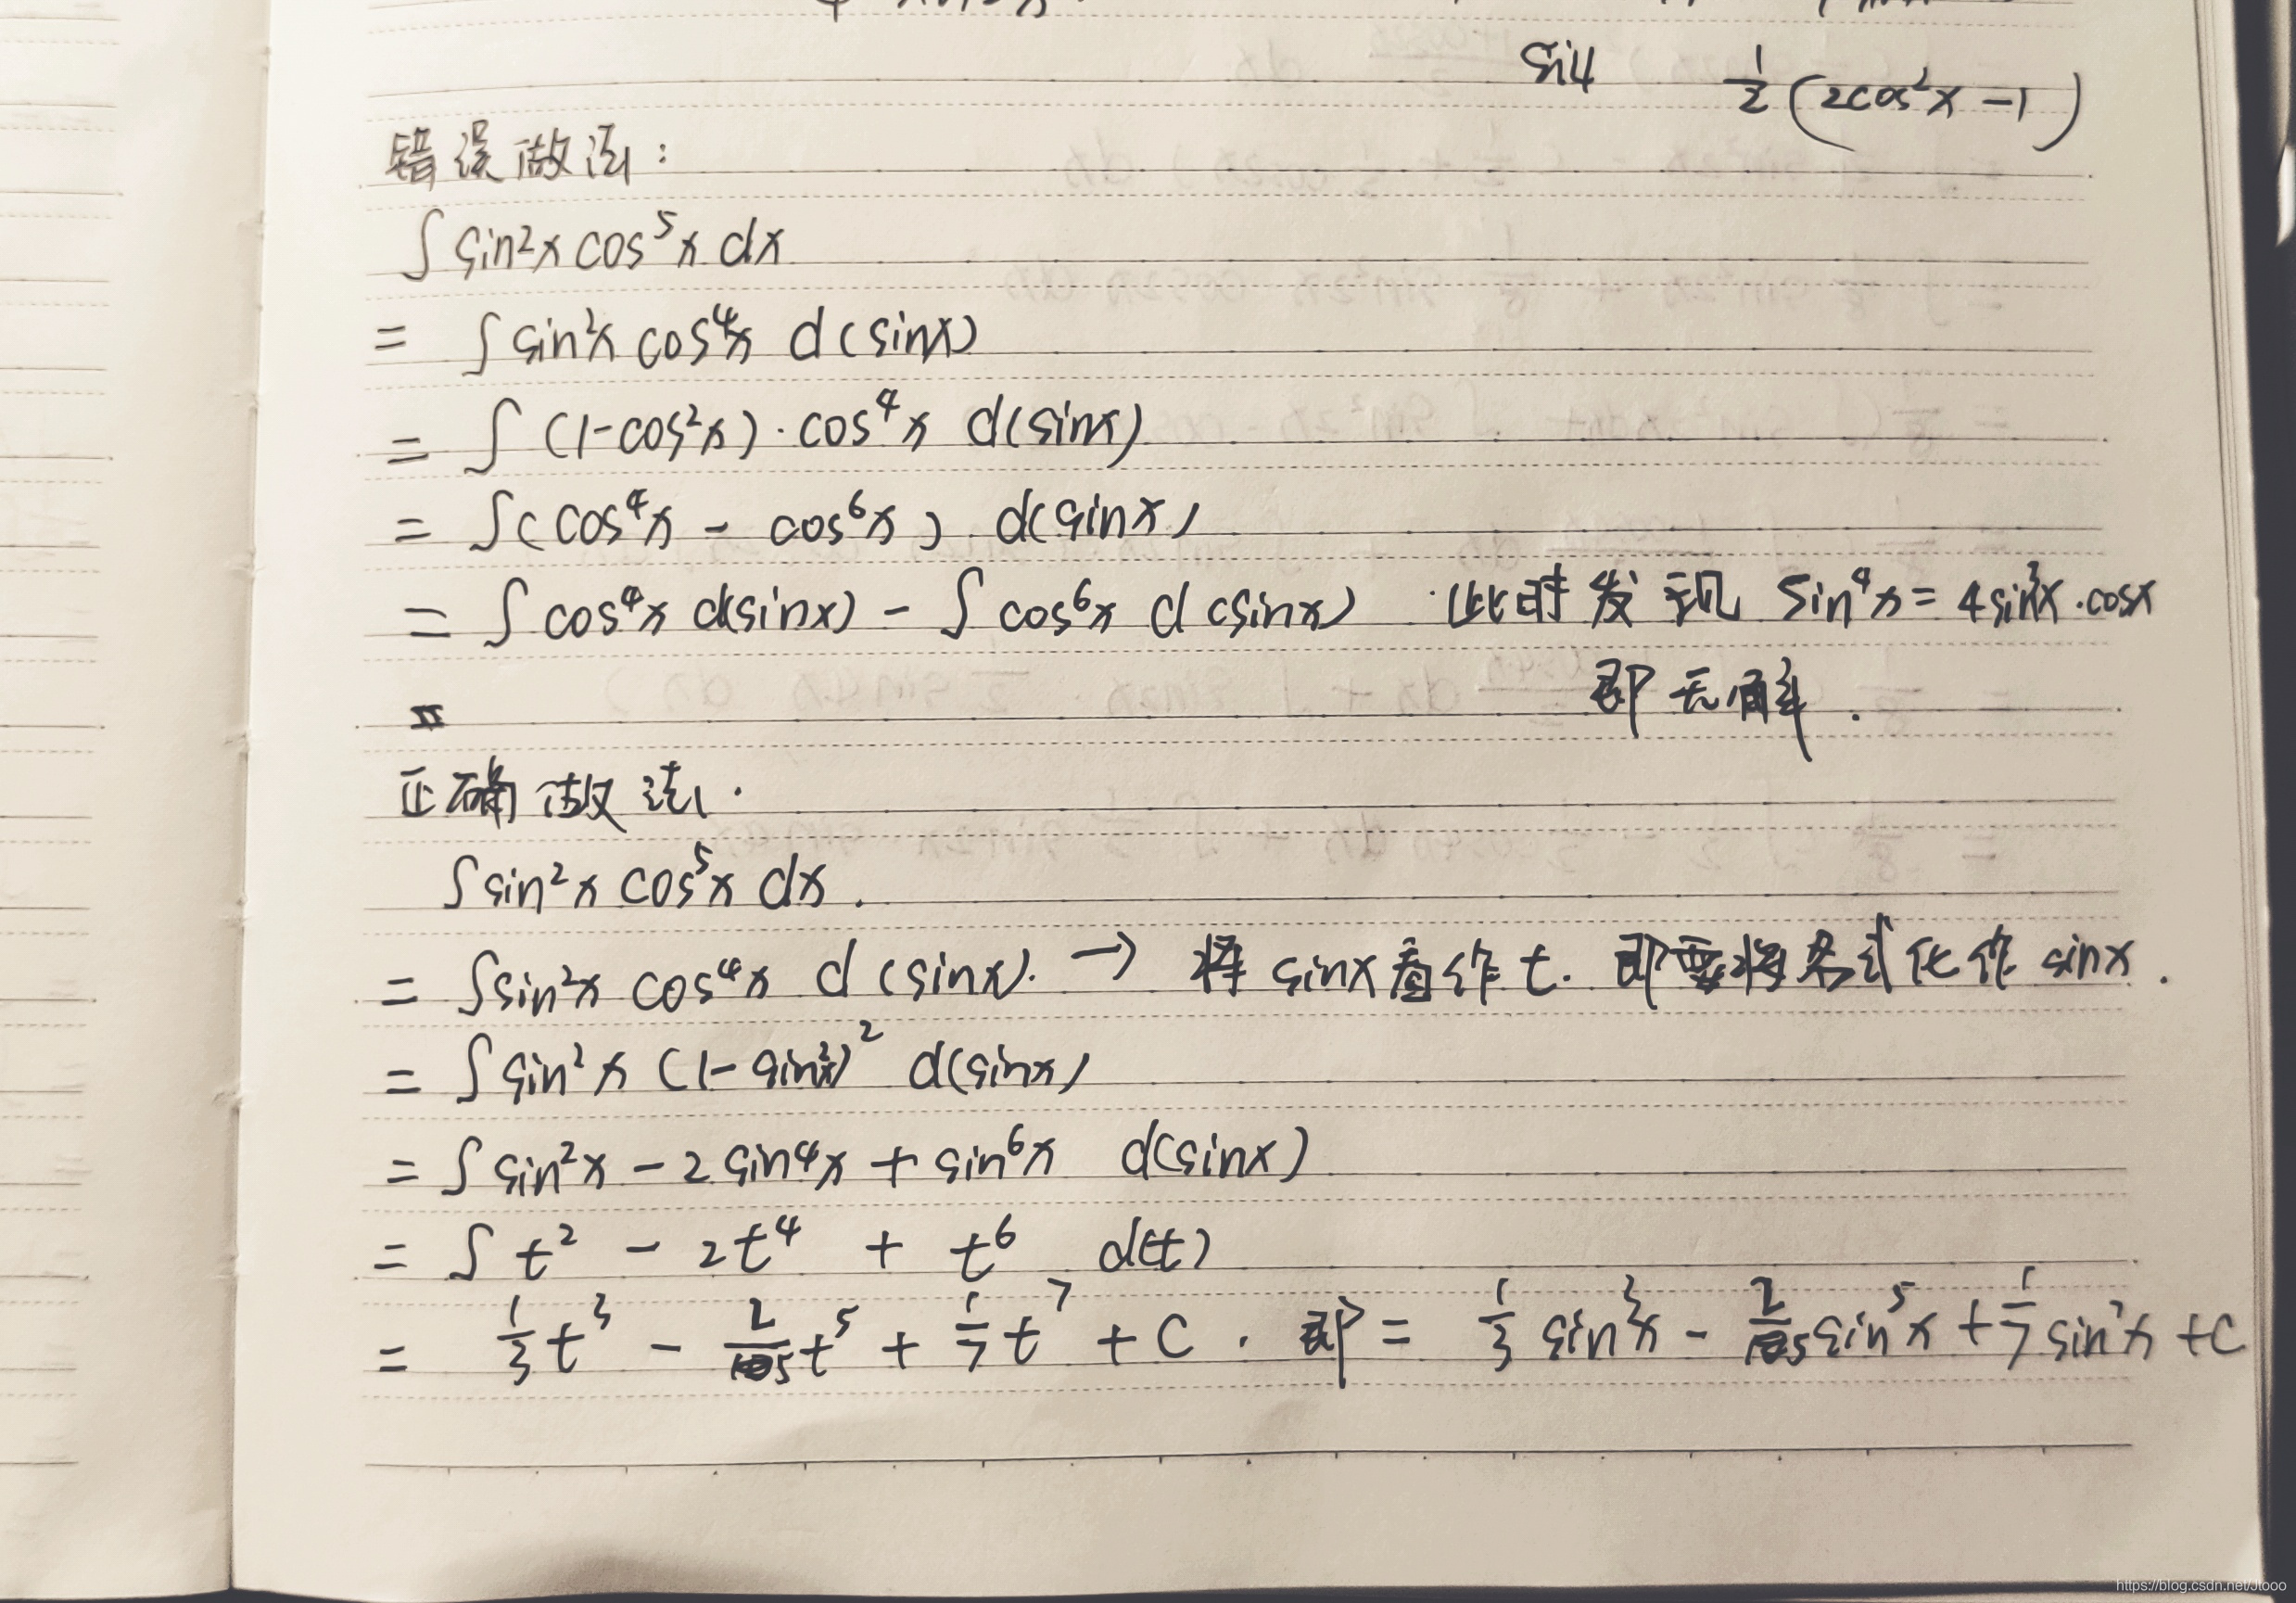 sin4 ½(2cos²x -1)
错误做法:
∫ sin²x cos⁵x dx
= ∫ sin²x cos⁴x d(sinx)
= ∫ (1-cos²x)·cos⁴x d(sinx)
= ∫( cos⁴x - cos⁶x ) d(sinx)
= ∫ cos⁴x d(sinx) - ∫ cos⁶x d(sinx) 此时发现 sin⁴x = 4sin³x·cosx
即无解.
=
正确做法.
∫ sin²x cos⁵x dx.
= ∫sin²x cos⁴x d(sinx). → 将 sinx看作 t. 即要将各式化作 sinx.
= ∫ sin²x (1-sin²x)² d(sinx)
= ∫ sin²x - 2sin⁴x + sin⁶x d(sinx)
= ∫ t² - 2t⁴ + t⁶ d(t)
= 1/3 t³ - 2/5 t⁵ + 1/7 t⁷ + C. 即 = 1/3 sin³x - 2/5 sin⁵x + 1/7 sin⁷x + C
https://blog.csdn.net/Jtooo